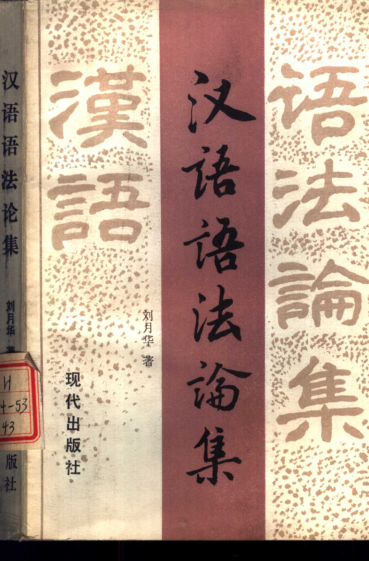 汉语语法论集
刘月华
H
4-53
43
版社
漢語
汉語語法論集
語法論集
刘月华 著
现代出版社